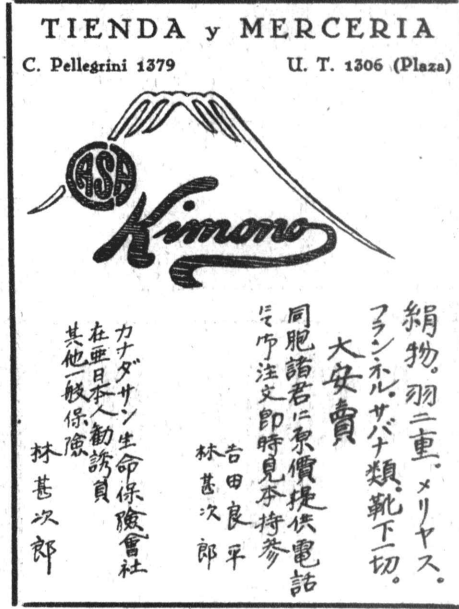 TIENDA y MERCERIA
C. Pellegrini 1379
U. T. 1306 (Plaza)
CASA
Kimono
絹物。羽二重。メリヤス。
フランネル。サバナ類。靴下一切。
大安賣
同胞諸君に原價提供電話
にて御注文即時見本持參
吉田良平
林甚次郎
カナダサン生命保險會社
在亜日本人勸誘員
其他一般保險
林甚次郎